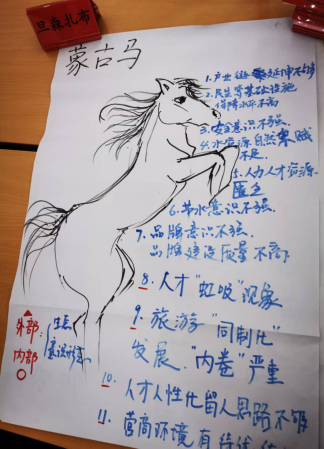 旦森扎布
蒙古马
1. 产业链延伸不够
2. 民生等基础设施
保障水平不高
3. 安全意识不强.
4. 水资源自然禀赋
不足.
5. 人力人才资源
匮乏
6. 节水意识不强.
7. 品牌意识不强.
品牌建设质量不高
8. 人才“虹吸”现象
9. 旅游“同制化”
发展.“内卷”严重
10. 人才人性化留人思路不够
11. 营商环境有待
外部:
内部
生态
意识形态